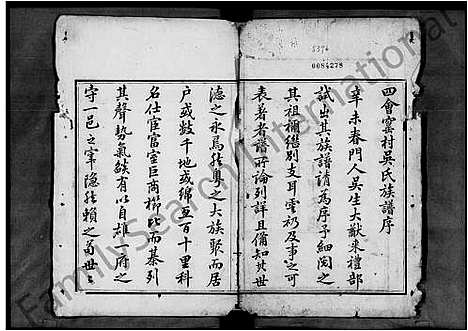 5376
0084278
四會窰村吳氏族譜序
辛未春門人吳生大猷來禮部
試出其族譜請為序予細閱之
其祖禰繼別支耳雲礽及事之可
表著者譜所論列詳且備知其世
德之永焉然粵之大族聚而居
户或數千地或綿亙百十里科
名仕宦富室巨商櫛比而綦列
其聲勢氣燄有以自雄一府之
守一邑之宰隱然賴之苟世之
FamilySearch International